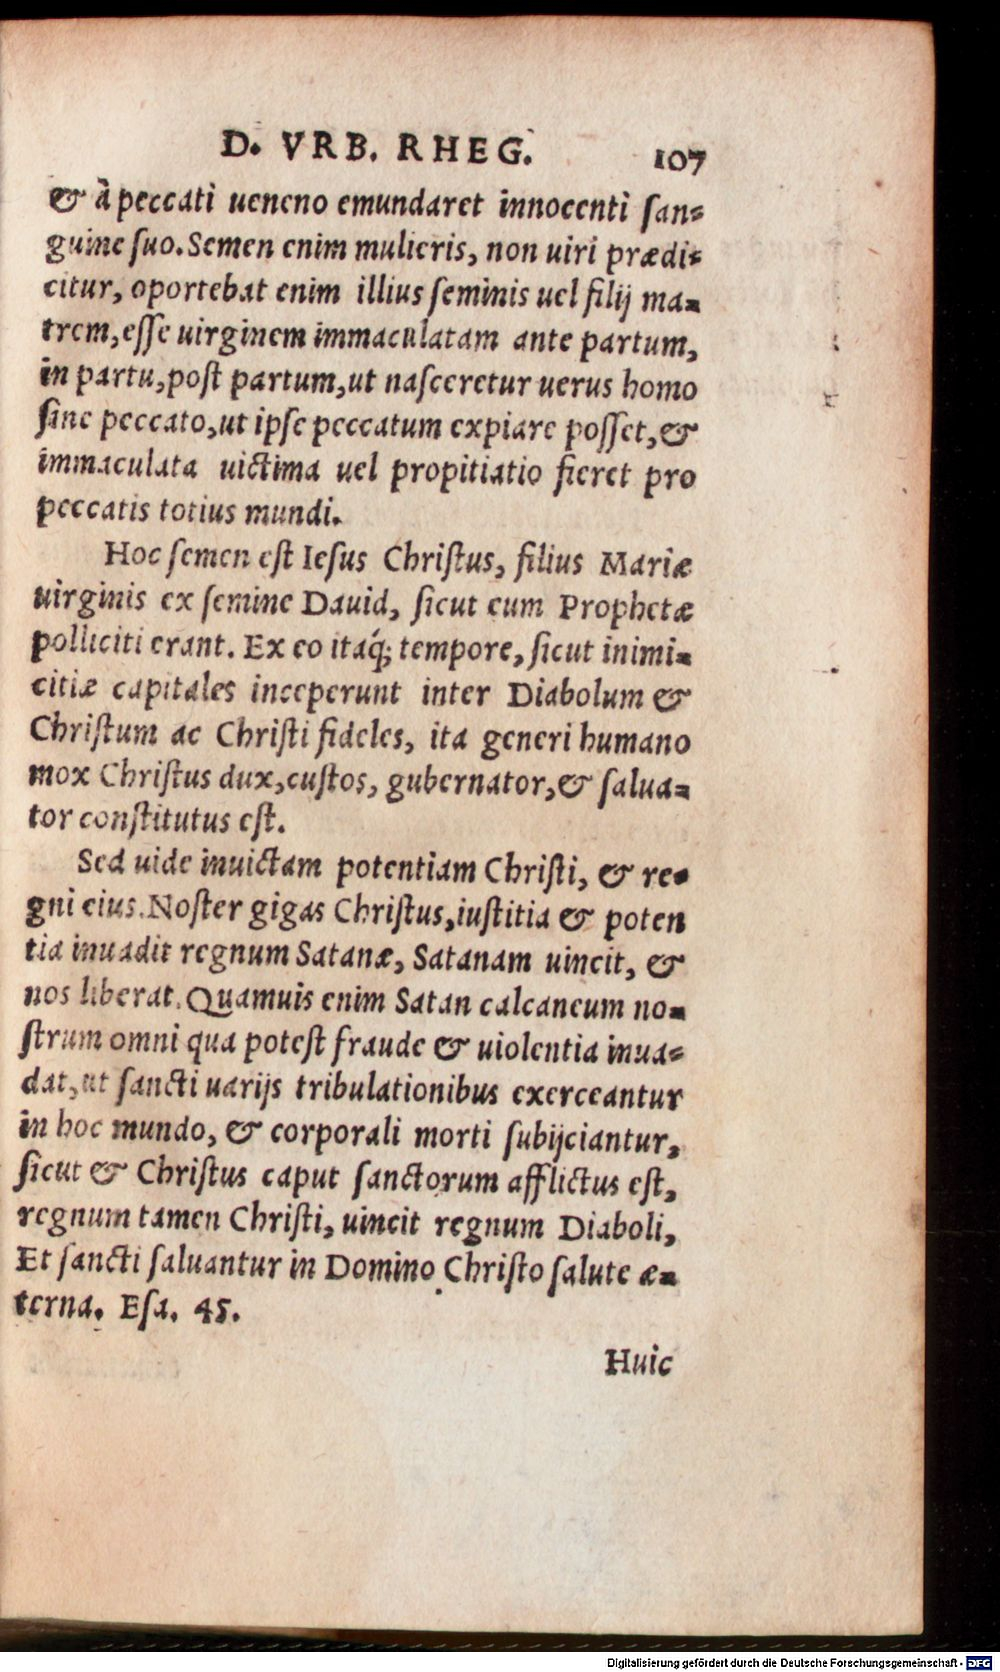 D. VRB. RHEG. 107
& à peccati ueneno emundaret innocenti san-
guine suo. Semen enim mulieris, non uiri prædi-
citur, oportebat enim illius seminis uel filij ma-
trem, esse uirginem immaculatam ante partum,
in partu, post partum, ut nasceretur uerus homo
sine peccato, ut ipse peccatum expiare posset, &
immaculata uictima uel propitiatio fieret pro
peccatis totius mundi.
Hoc semen est Iesus Christus, filius Mariæ
uirginis ex semine Dauid, sicut eum Prophetæ
polliciti erant. Ex eo itaq́; tempore, sicut inimi-
citiæ capitales inceperunt inter Diabolum &
Christum ac Christi fideles, ita generi humano
mox Christus dux, custos, gubernator, & salua-
tor constitutus est.
Sed uide inuictam potentiam Christi, & re-
gni eius. Noster gigas Christus, iustitia & poten
tia inuadit regnum Satanæ, Satanam uincit, &
nos liberat. Quamuis enim Satan calcaneum no-
strum omni qua potest fraude & uiolentia inua-
dat, ut sancti uarijs tribulationibus exerceantur
in hoc mundo, & corporali morti subijciantur,
sicut & Christus caput sanctorum afflictus est,
regnum tamen Christi, uincit regnum Diaboli,
Et sancti saluantur in Domino Christo salute æ-
terna. Esa. 45.
Huic
Digitalisierung gefördert durch die Deutsche Forschungsgemeinschaft - DFG